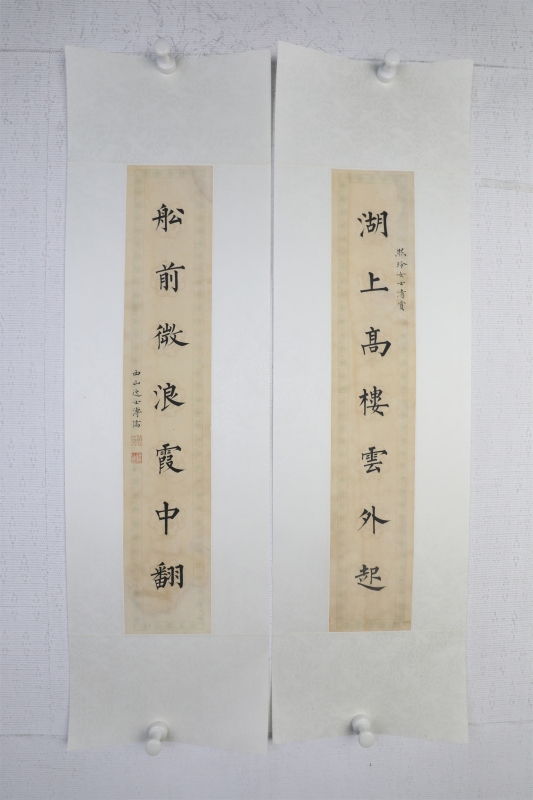 湖上髙樓雲外起
女士清賞
舩前微浪霞中翻
西山逸士溥儒